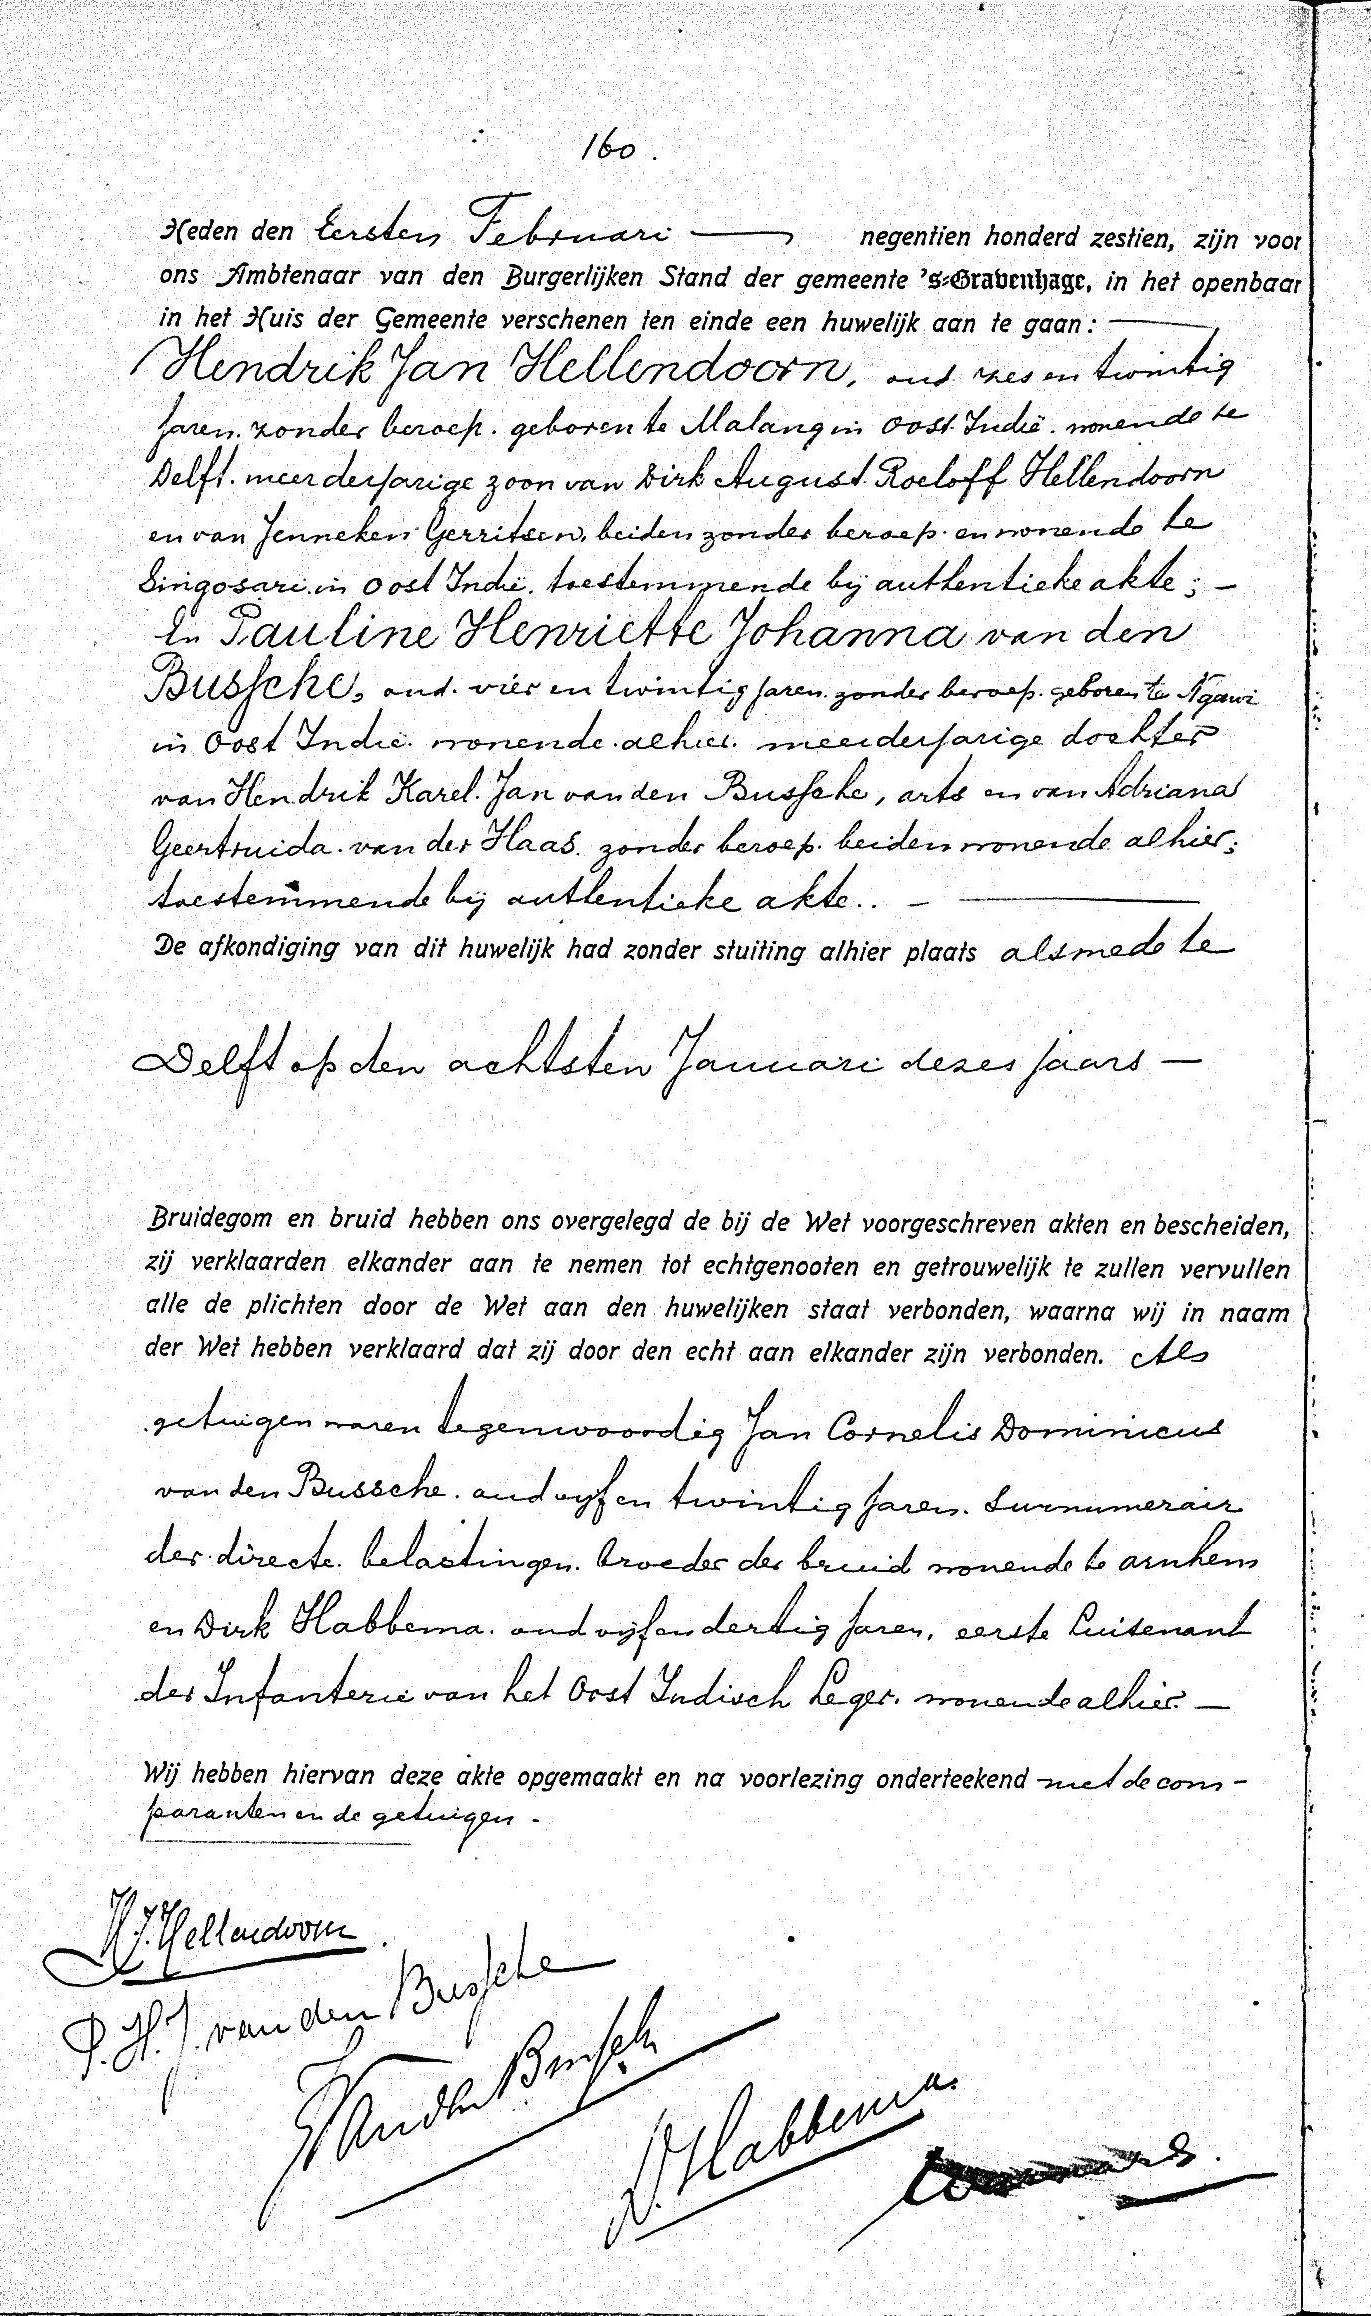 160.
Heden den Eersten Februari — negentien honderd zestien, zijn voor
ons Ambtenaar van den Burgerlijken Stand der gemeente 's-Gravenhage, in het openbaar
in het Huis der Gemeente verschenen ten einde een huwelijk aan te gaan: —
Hendrik Jan Hellendoorn, oud zes en twintig
jaren. zonder beroep. geboren te Malang in Oost Indië. wonende te
Delft. meerderjarige zoon van Dirk August Roeloff Hellendoorn
en van Jenneken Gerritsen, beiden zonder beroep. en wonende te
Singosari. in Oost Indië. toestemmende bij authentieke akte; —
En Pauline Henriette Johanna van den
Bussche, oud. vier en twintig jaren. zonder beroep. geboren te Ngawi
in Oost Indië. wonende. alhier. meerderjarige dochter
van Hendrik Karel. Jan van den Bussche, arts en van Adriana
Geertruida. van der Haas. zonder beroep. beiden wonende alhier;
toestemmende bij authentieke akte.. — —
De afkondiging van dit huwelijk had zonder stuiting alhier plaats alsmede te
Delft op den achtsten Januari dezes jaars —
Bruidegom en bruid hebben ons overgelegd de bij de Wet voorgeschreven akten en bescheiden,
zij verklaarden elkander aan te nemen tot echtgenooten en getrouwelijk te zullen vervullen
alle de plichten door de Wet aan den huwelijken staat verbonden, waarna wij in naam
der Wet hebben verklaard dat zij door den echt aan elkander zijn verbonden. Als
getuigen waren tegenwoordig Jan Cornelis Dominicus
van den Bussche. oud vijf en twintig jaren. Surnumerair
der directe. belastingen. broeder der bruid wonende te Arnhem
en Dirk Habbema. oud vijf en dertig jaren, eerste Luitenant
der Infanterie van het Oost Indisch Leger. wonende alhier. —
Wij hebben hiervan deze akte opgemaakt en na voorlezing onderteekend met de com-
paranten en de getuigen.
HJ. Hellendoorn.
P. H. J. van den Bussche
van den Bussche
D. Habbema.